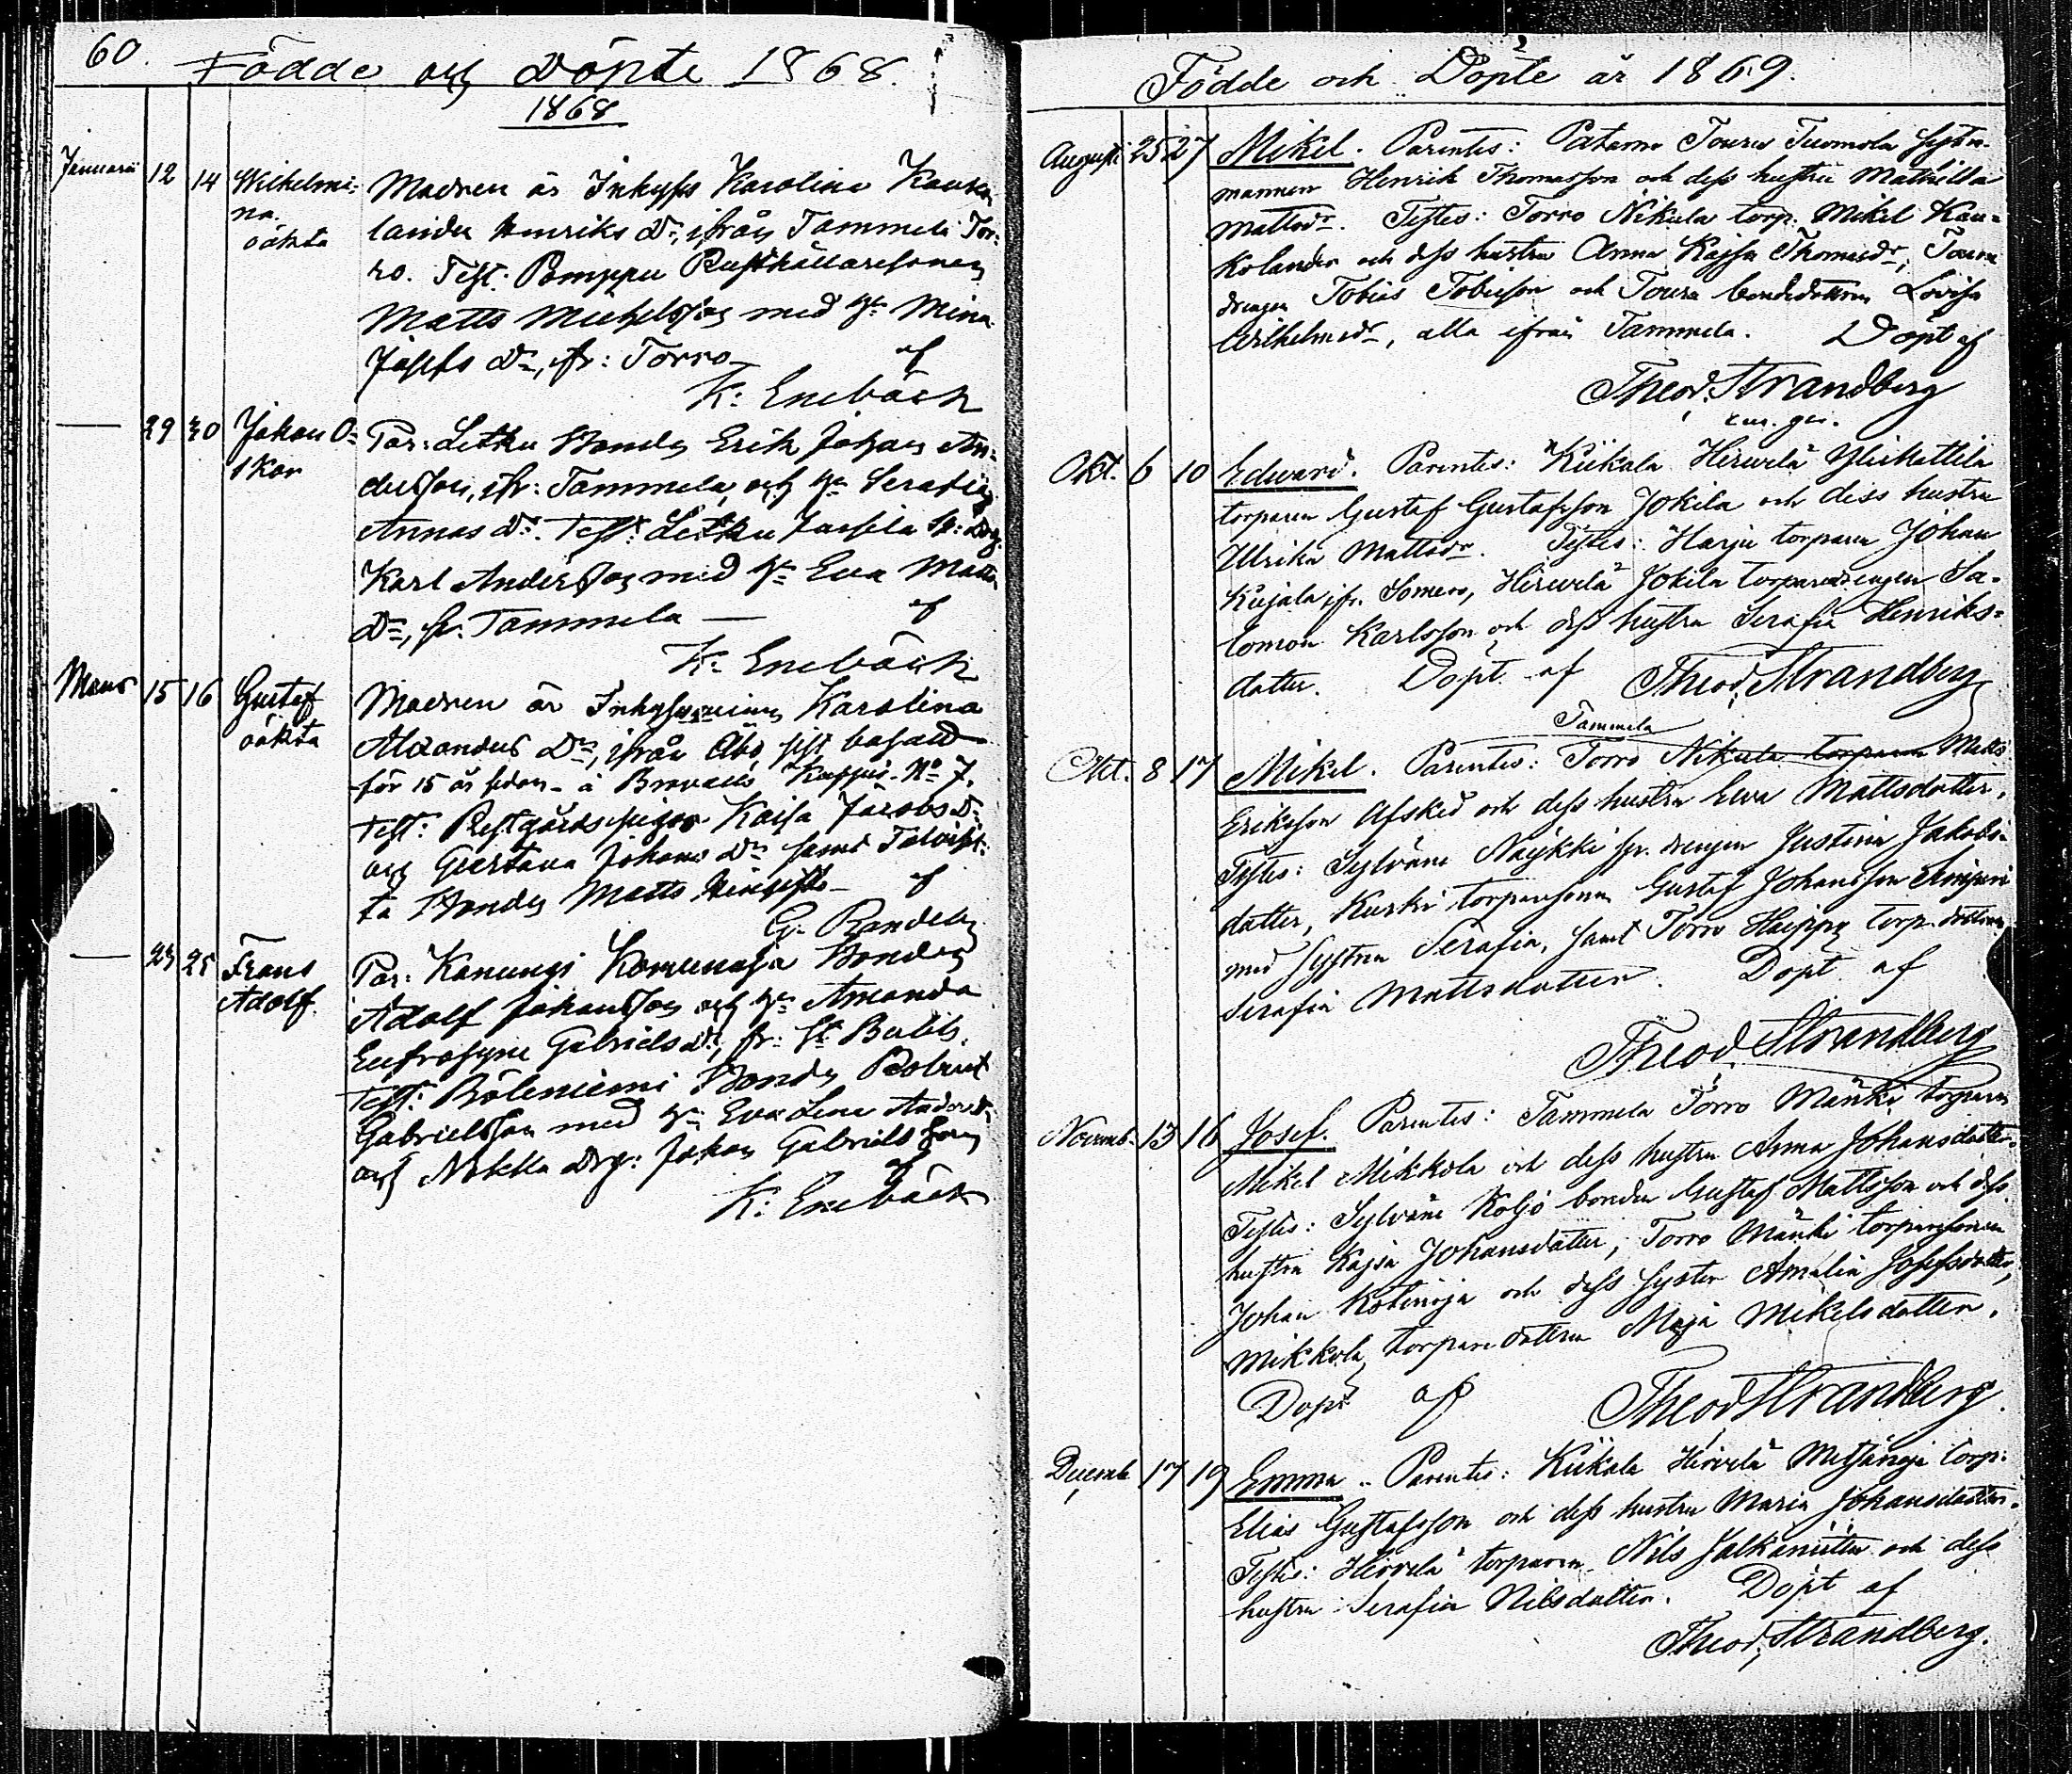 60.
Födde och Döpte 1868.
1868
Januari 12 14 Wilhelmi-
na.
oäkta
Modren är Inhyses Karolina
Henriks Dr, ifrån Tammela Tor-
ro. Test: Pomppu Rusthållaresonen
Matts Michelsson med Hu Mina
Josefs Dr, fr: Torro— af
K: Enebäck
— 29 30 Johan O-
skar
Par: Letku Bonden Erik Johan An-
dersson, ifr: Tammela, och Hu Serafina
Annas Dr. Test: Letku Jussila
Karl Andersson med Hu Eva Matts
Dr, fr. Tammela — af
K: Enebäck
Mars 15 16 Gustaf
oäkta
Modren är Inhysespigan Karolina
Alexanders Dr, ifrån Åbo, sist
för 15 år sedan å No 7.
Test: Kaisa Jacobs Dr
och Gustava Johans Dr samt
ta Bonden Matts af
G. Randelin
— 23 25 Frans
Adolf.
Par: Kanungi Bonden
Adolf Johansson och Hu Amanda
Eufrosyne Gabriels Dr, fr:
Test: Bonden Robert
Gabrielsson med Hu Eva Lena Anders Dr
och Nokka Drg: Johan Gabrielsson
af
K: Enebäck
Födde och Döpte år 1869.
Augusti 25 27 Mikel. Parentes: Patamo Touru Tuomola
mannen Henrik Thomasson och dess hustru Mathilda
Mattsdr. Testes: Torro Nikula torp. Mikel Kau-
kolander och dess hustru Anna Kajsa Thomasdr, Touru
drengen Tobias Tobiasson och Touru bondedottren Lovisa
Wilhelmsdr, alla ifrån Tammela. Döpt af
Theod. Strandberg
Okt. 6 10 Edward. Parentes: Kiikala Hirvelä Ylikattila
torparen Gustaf Gustafsson Jokila och dess hustru
Ulrika Mattsdr. Testes: Harju torparen Johan
Kujala ifr. Somero, Hirvelä Jokila torparedrengen Sa-
lomon Karlsson och dess hustru Serafia Henriks-
dotter. Döpt af Theod. Strandberg
Tammela
Okt. 8 17 Mikel. Parentes: Torro Nikula torparen Matts
Eriksson Afsked och dess hustru Eva Mattsdotter.
Testes: Sylväne Näykki drengen Justina Jakobs-
dotter, Kurki torparesonen Gustaf Johansson
med systren Serafia, samt Torro Haippy torp. dottren
Serafia Mattsdotter. Döpt af
Theod. Strandberg
Novemb. 13 16 Josef. Parentes: Tammela Torro Mänki torparen
Mikel Mikkola och dess hustru Anna Johansdotter.
Testes: Sylväne Koljo bonden Gustaf Mattsson och dess
hustru Kajsa Johansdotter, Torro Mänki torparesonen
Johan Kotinoja och dess syster Amalia Josefsdotter,
Mikkola torparedottren Maja Mikelsdotter.
Döpt af Theod. Strandberg.
Decemb. 17 19 Emma. Parentes: Kiikala Hirvelä Metsänoja torp.
Elias Gustafsson och dess hustru Maria Johansdotter.
Testes: Hirvelä torparen Nils och dess
hustru Serafia Nilsdotter. Döpt af
Theod. Strandberg.